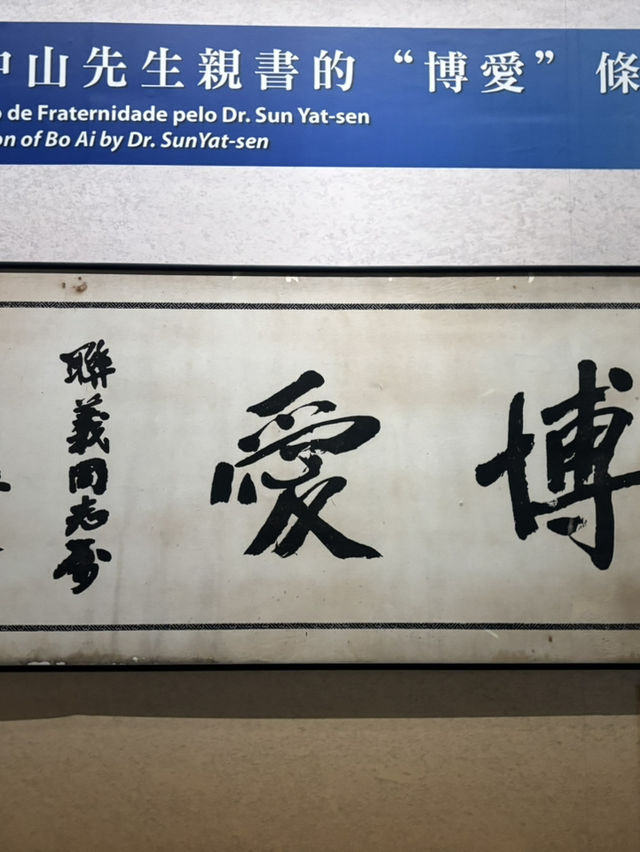 中山先生親書的“博愛”條
o de Fraternidade pelo Dr. Sun Yat-sen
on of Bo Ai by Dr. SunYat-sen
博愛
聯義同志屬